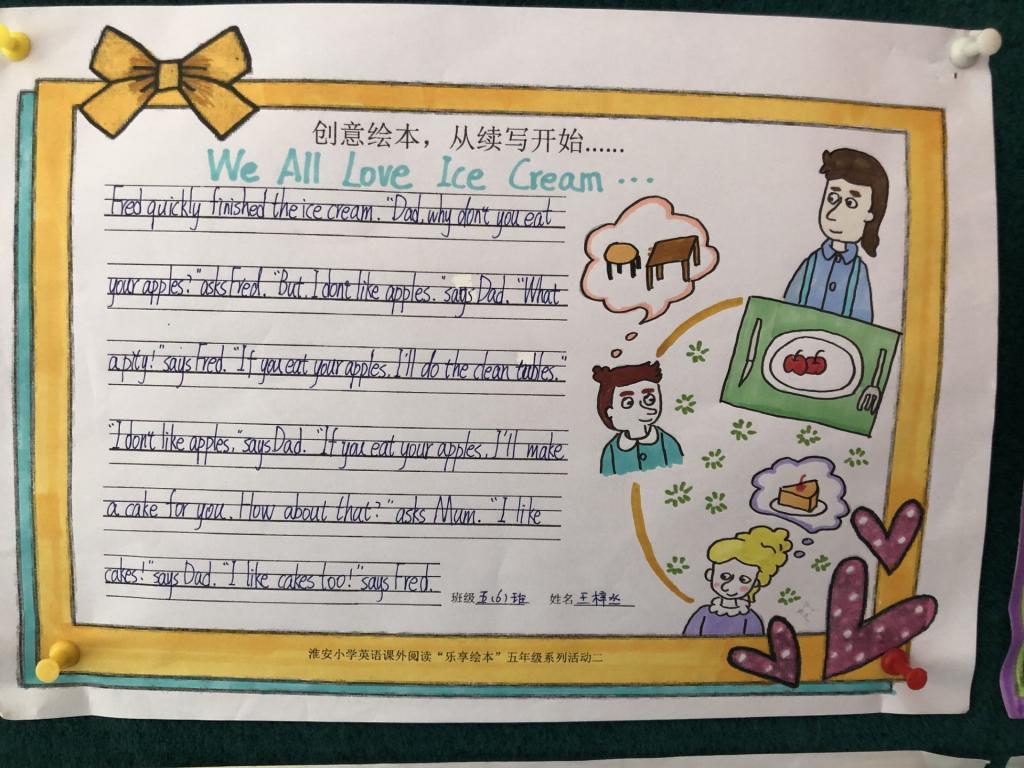 创意绘本，从续写开始......
We All Love Ice Cream ...
Fred quickly finished the ice cream. "Dad, why don't you eat
your apples?" asks Fred. "But, I don't like apples." says Dad. "What
a pity!" says Fred. "If you eat your apples, I'll do the clean tables."
"I don't like apples," says Dad. "If you eat your apples, I'll make
a cake for you. How about that?" asks Mum. "I like
cakes!" says Dad. "I like cakes too!" says Fred.
班级 五(6)班 姓名 王梓丞
淮安小学英语课外阅读“乐享绘本”五年级系列活动二